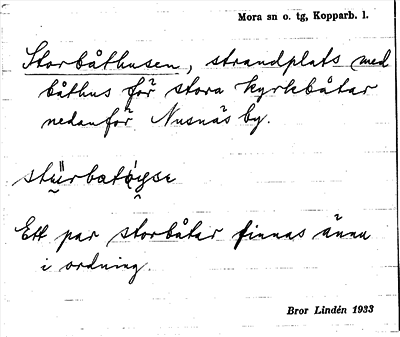 Mora sn o. tg, Kopparb. l.
Storbåthusen, strandplats med
båthus för stora kyrkbåtar
nedanför Nusnäs by.
Ett par storbåtar finnas ännu
i ordning.
Bror Lindén 1933